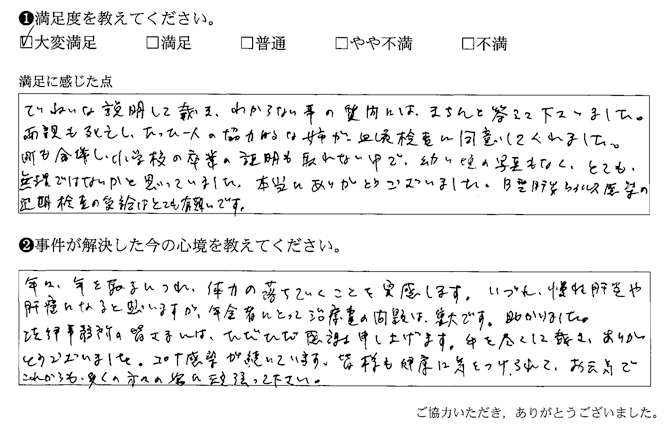 ❶満足度を教えてください。
☑大変満足 □満足 □普通 □やや不満 □不満
満足に感じた点
ていねいな説明して戴き、わからない事の質問には、きちんと答えて下さいました。
両親も死亡し、たった一人の協力的な姉が血液検査に同意してくれました。
町も合併し、小学校の卒業の証明も取れない中で、幼い頃の写真もなく、とても、
無理ではないかと思っていました。本当にありがとうございました。B型肝炎ウイルス感染の
定期検査の受給はとても有難いです。
❷事件が解決した今の心境を教えてください。
年々、年を取るにつれ、体力の落ちていくことを実感します。いづれ、慢性肝炎や
肝癌になると思いますが、年金者にとって治療費の問題は、重大です。助かりました。
法律事務所の皆さまには、ひたすら感謝申し上げます。力を尽くして戴き、ありが
とうございました。コロナ感染が続いています。皆様も健康に気をつけられて、お元気で
これからも、多くの方々の為に頑張って下さい。
ご協力いただき，ありがとうございました。